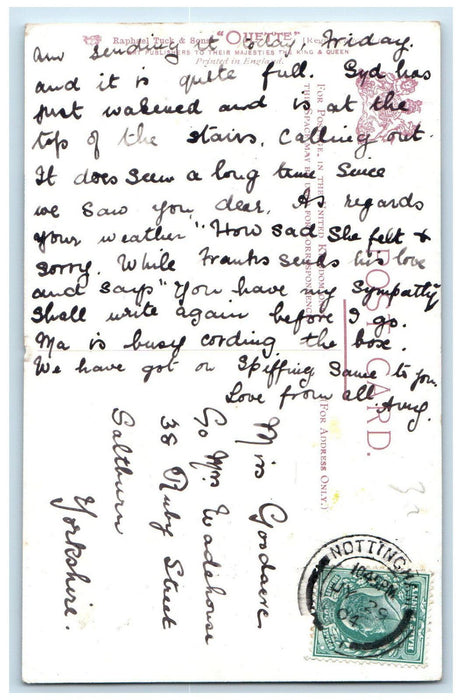 Raphael Tuck & Sons' "OILETTE" [Regd
ART PUBLISHERS TO THEIR MAJESTIES THE KING & QUEEN
Printed in England.
am sending it today, Friday.
and it is quite full. Syd has
just wakened and is at the
top of the stairs, calling out.
It does seem a long time since
we saw you dear. As regards
your weather "How sad She felt &
sorry. While Franks sends his love
and says "You have my Sympathy
Shall write again before I go.
Ma is busy cording the box.
We have got on Spiffing Same to you.
Love from all. Amy.
FOR POSTAGE IN THE UNITED KINGDOM ONLY
THIS SPACE MAY BE USED FOR CORRESPONDENCE
POST CARD.
(FOR ADDRESS ONLY.)
Miss Goodacre
C/o Mrs Wadehouse
38 Ruby Street
Saltburn
Yorkshire.
NOTTINGHAM
JY 29
04